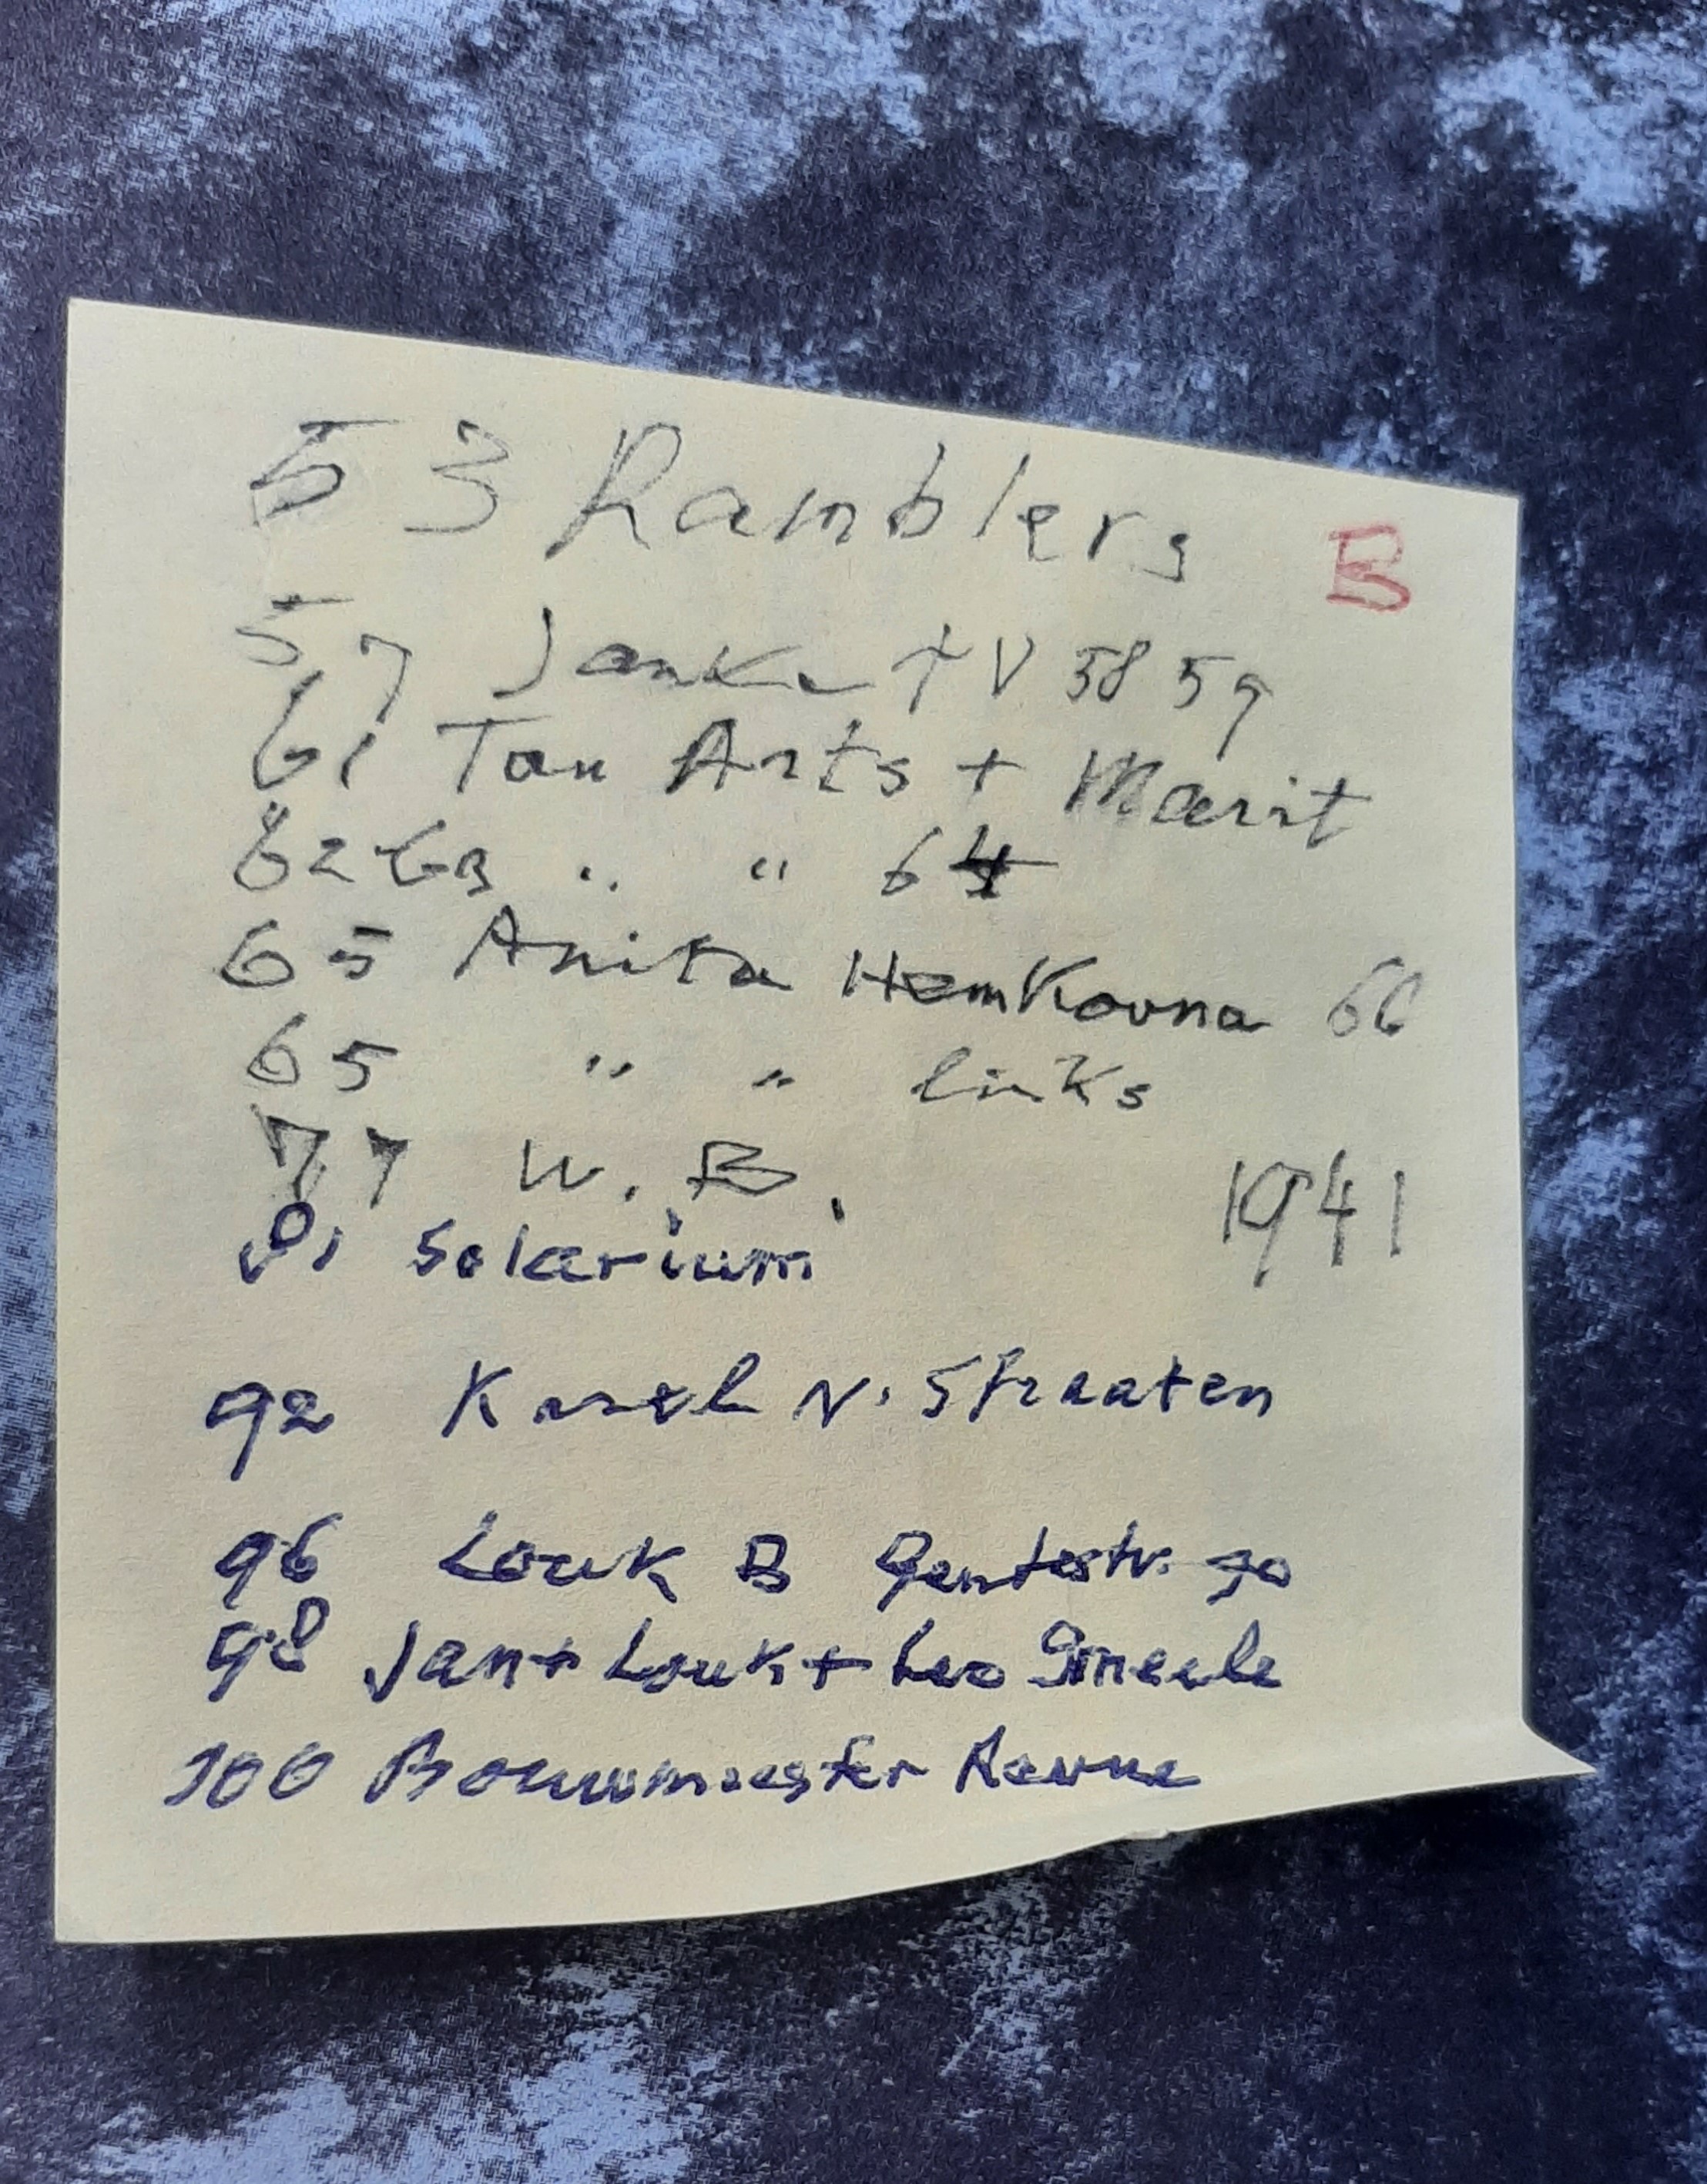 53 Ramblers
B
57 Janke TV 58 59
61 Ton Arts + Marit
62 63 " " 64
65 Anita Hemkovna 66
65 " " links
77 W. B.
1941
81 Solarium
92 Karel v. Straaten
96 Louk B Gentestr. 90
98 Jan + Louk + Leo
100 Bouwmeester Revue